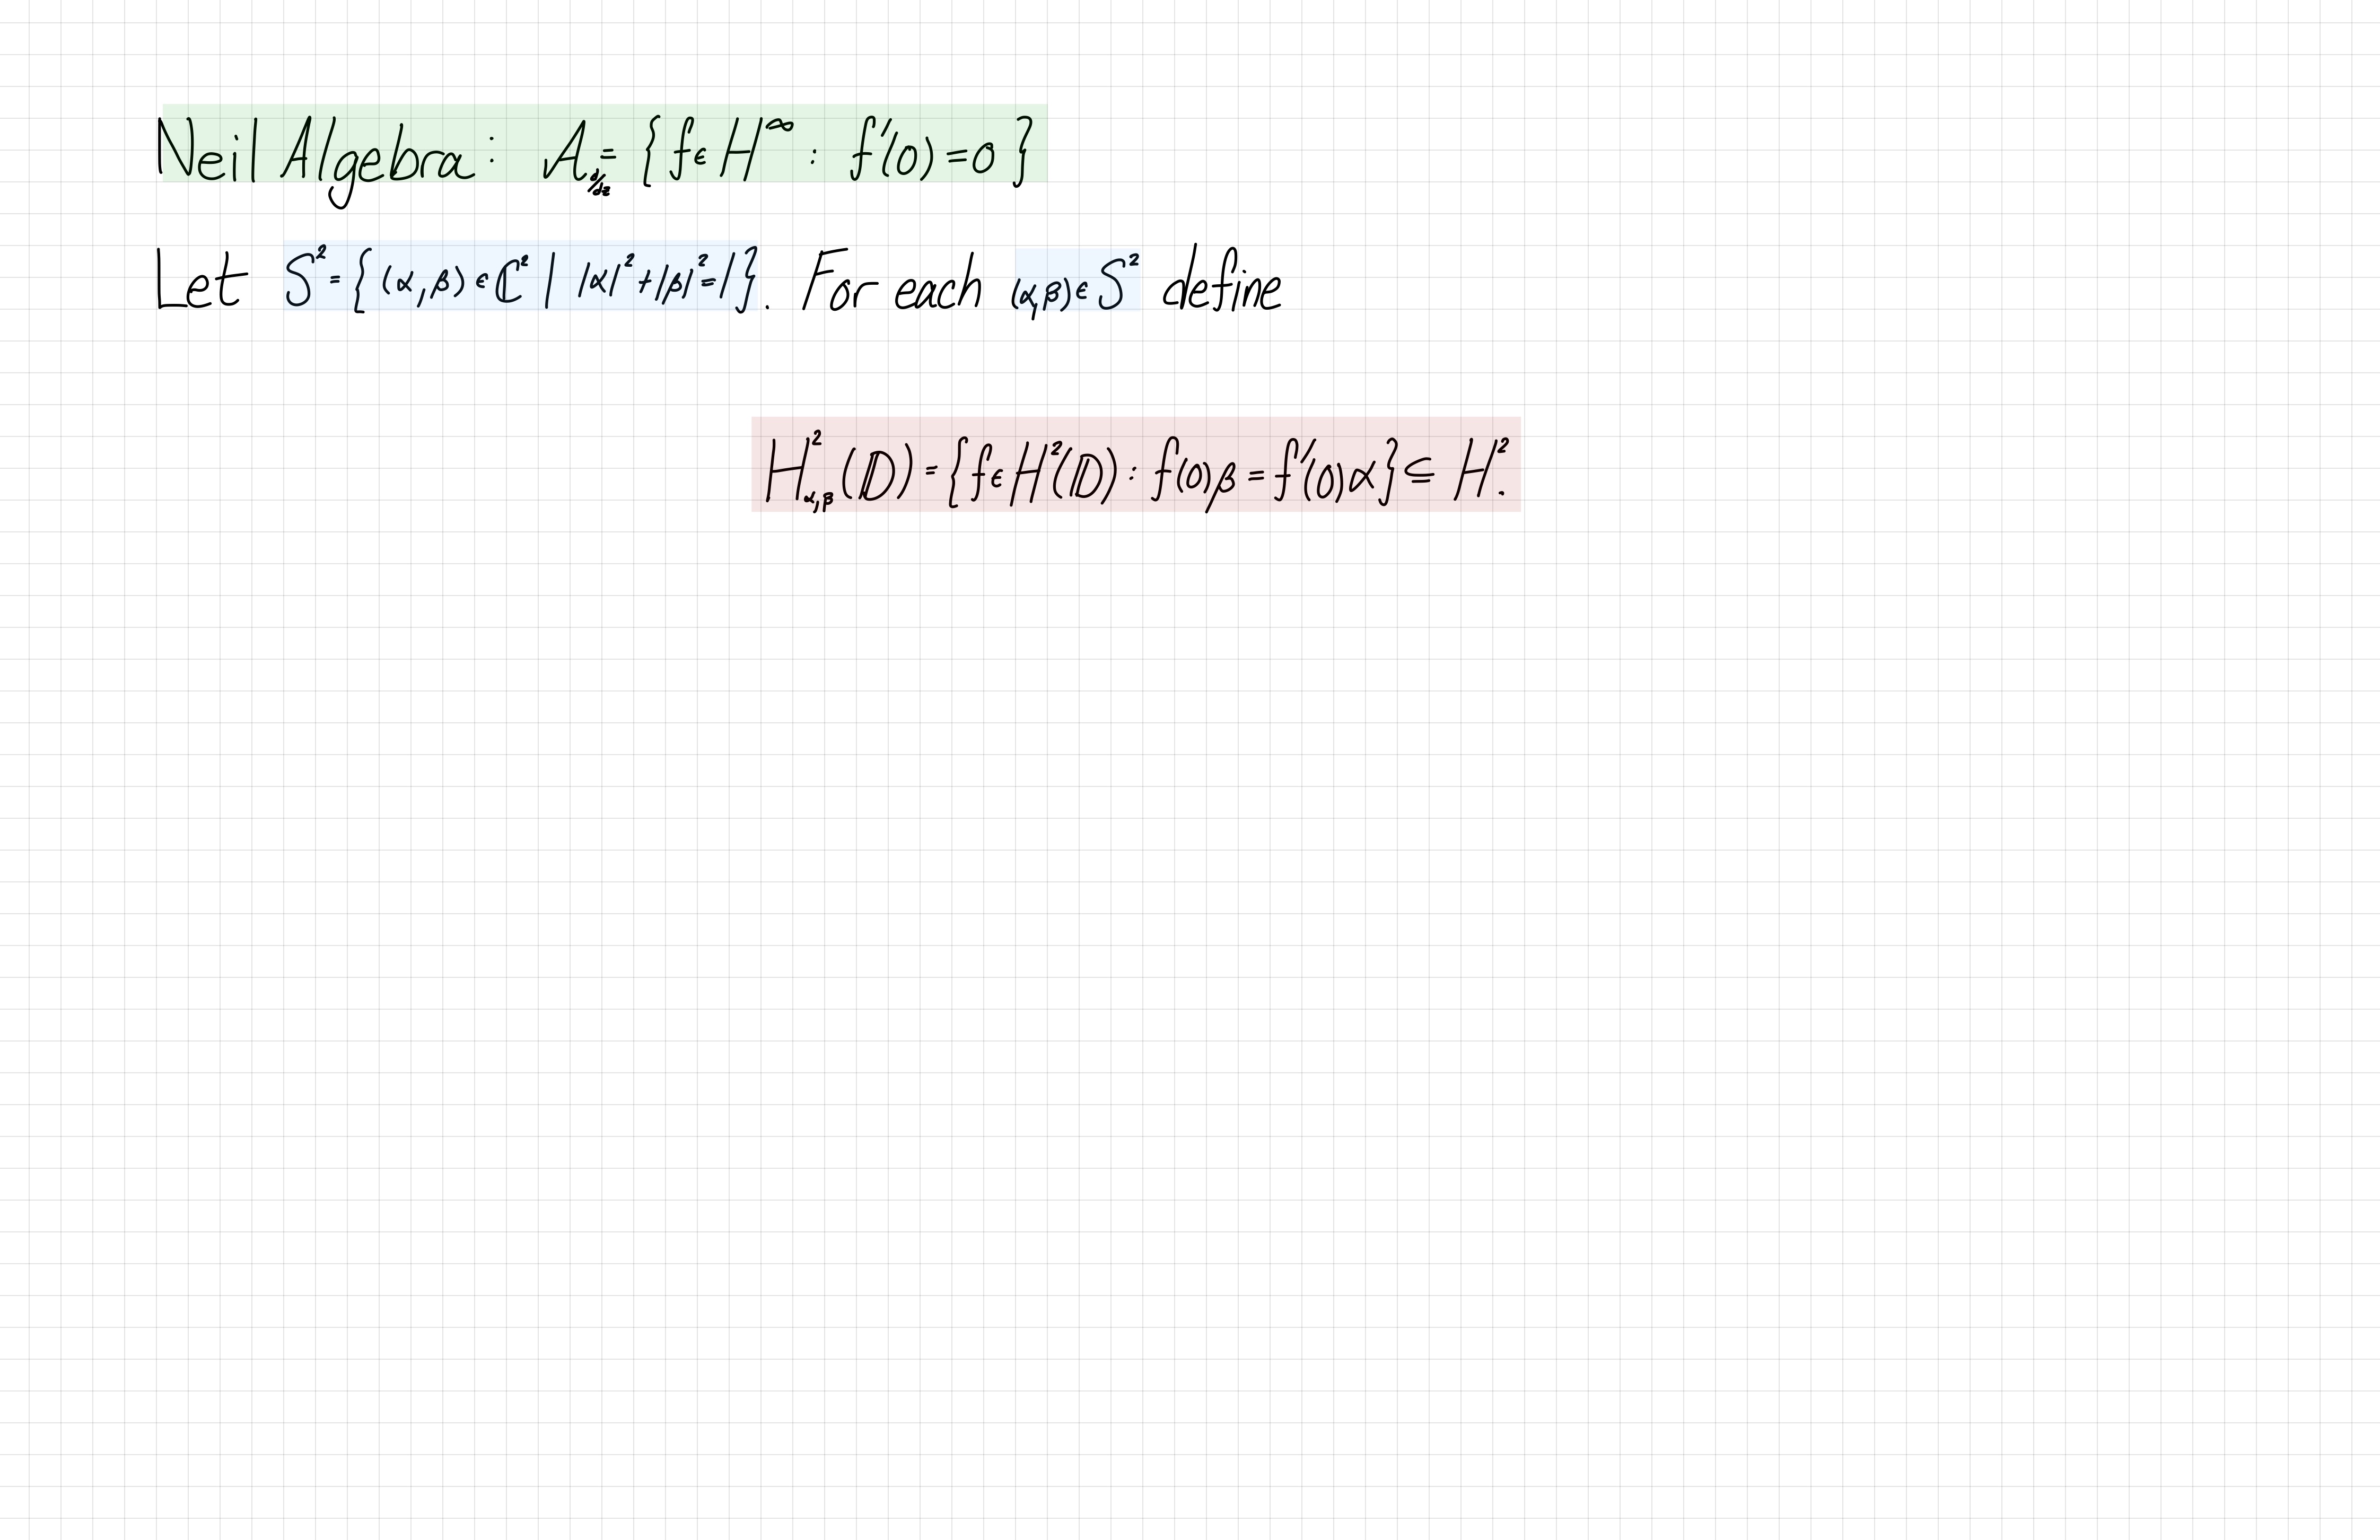 Neil Algebra: A_{d/dz} = {f ∈ H^∞ : f'(0) = 0}
Let S² = {(α, β) ∈ ℂ² | |α|² + |β|² = 1}. For each (α, β) ∈ S² define
H²_{α,β}(𝔻) = {f ∈ H²(𝔻) : f(0)β = f'(0)α} ⊆ H².